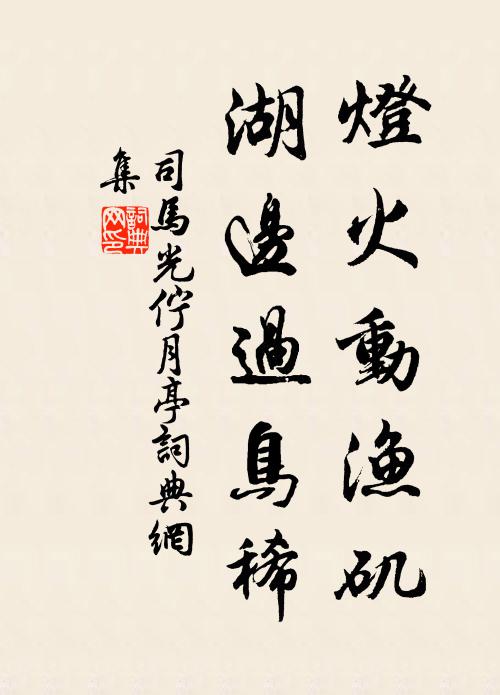 燈火動漁矶
湖邊過鳥稀
司馬光佇月亭詞典網
集
詞典網印